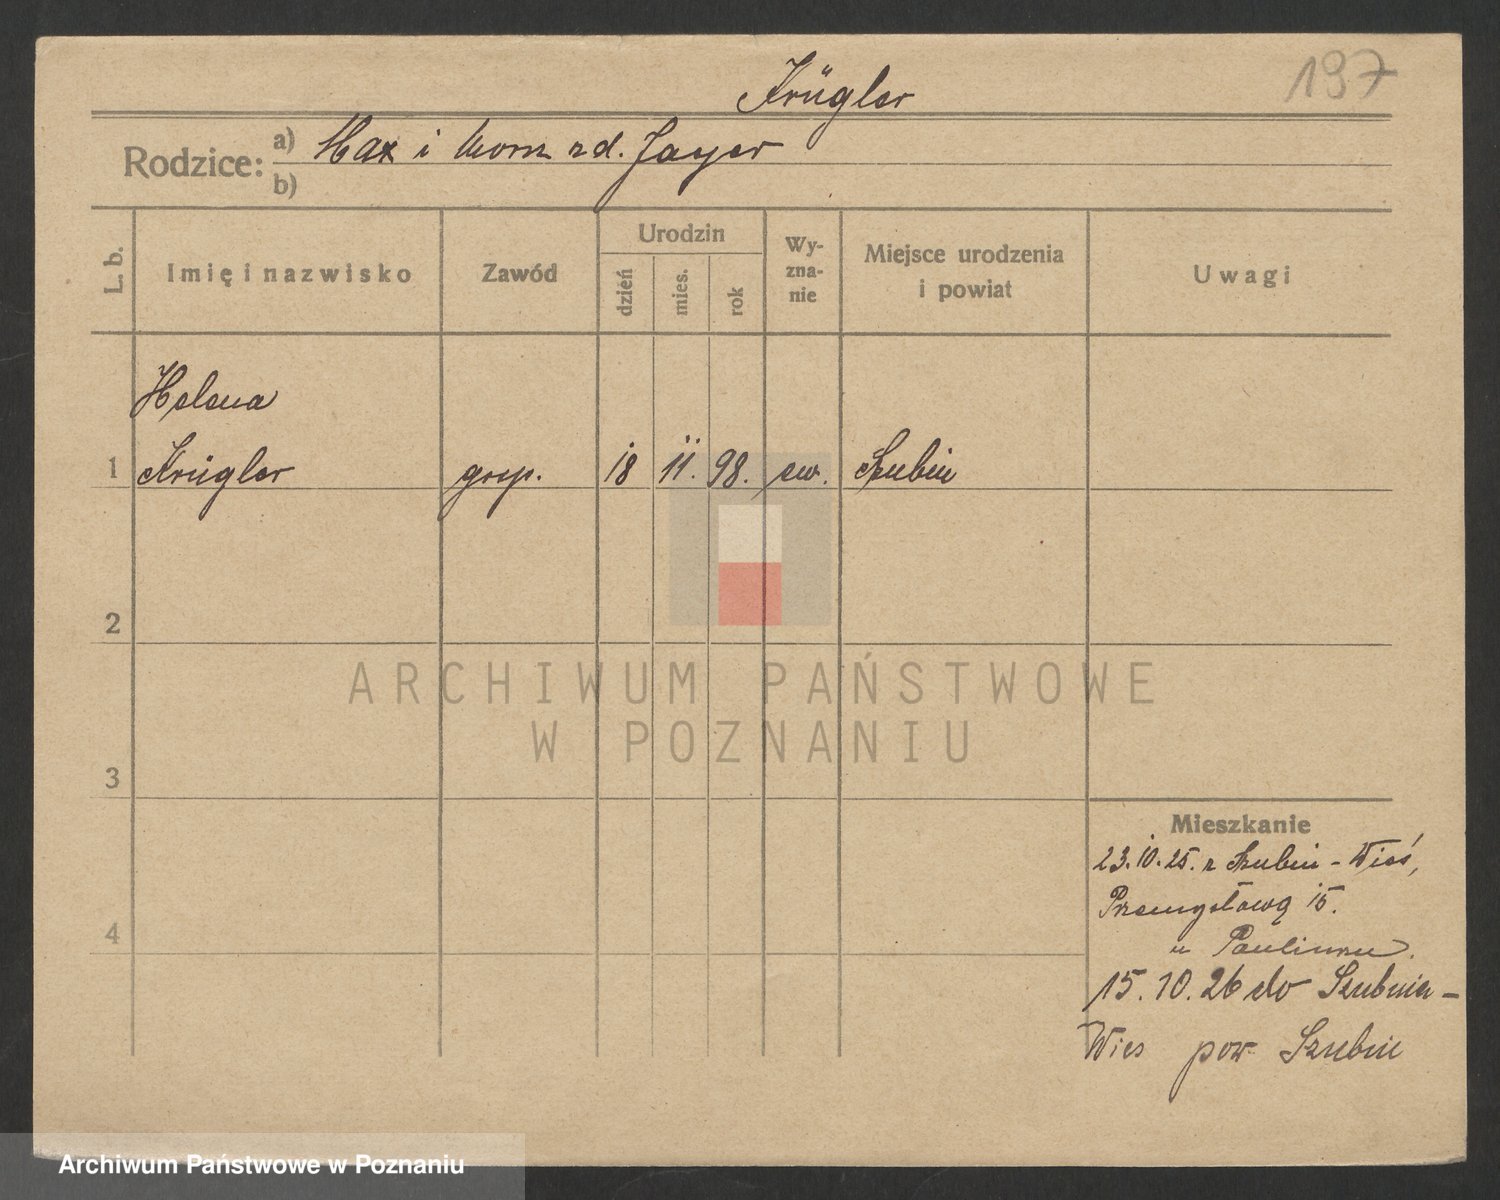 197
Krügler
Rodzice: a) Max i zd. Jayer
b)
L. b.
Imię i nazwisko
Zawód
Urodzin
dzień
mies.
rok
Wy-
zna-
nie
Miejsce urodzenia
i powiat
Uwagi
Helena
1 Krügler gosp. 18 11. 98. ew. Szubin
2
3
4
Mieszkanie
23.10.25. z Szubin - Wieś,
Przemysłowa 15.
u
15.10.26 do Szubina -
Wies pow Szubin
ARCHIWUM PAŃSTWOWE
W POZNANIU
Archiwum Państwowe w Poznaniu